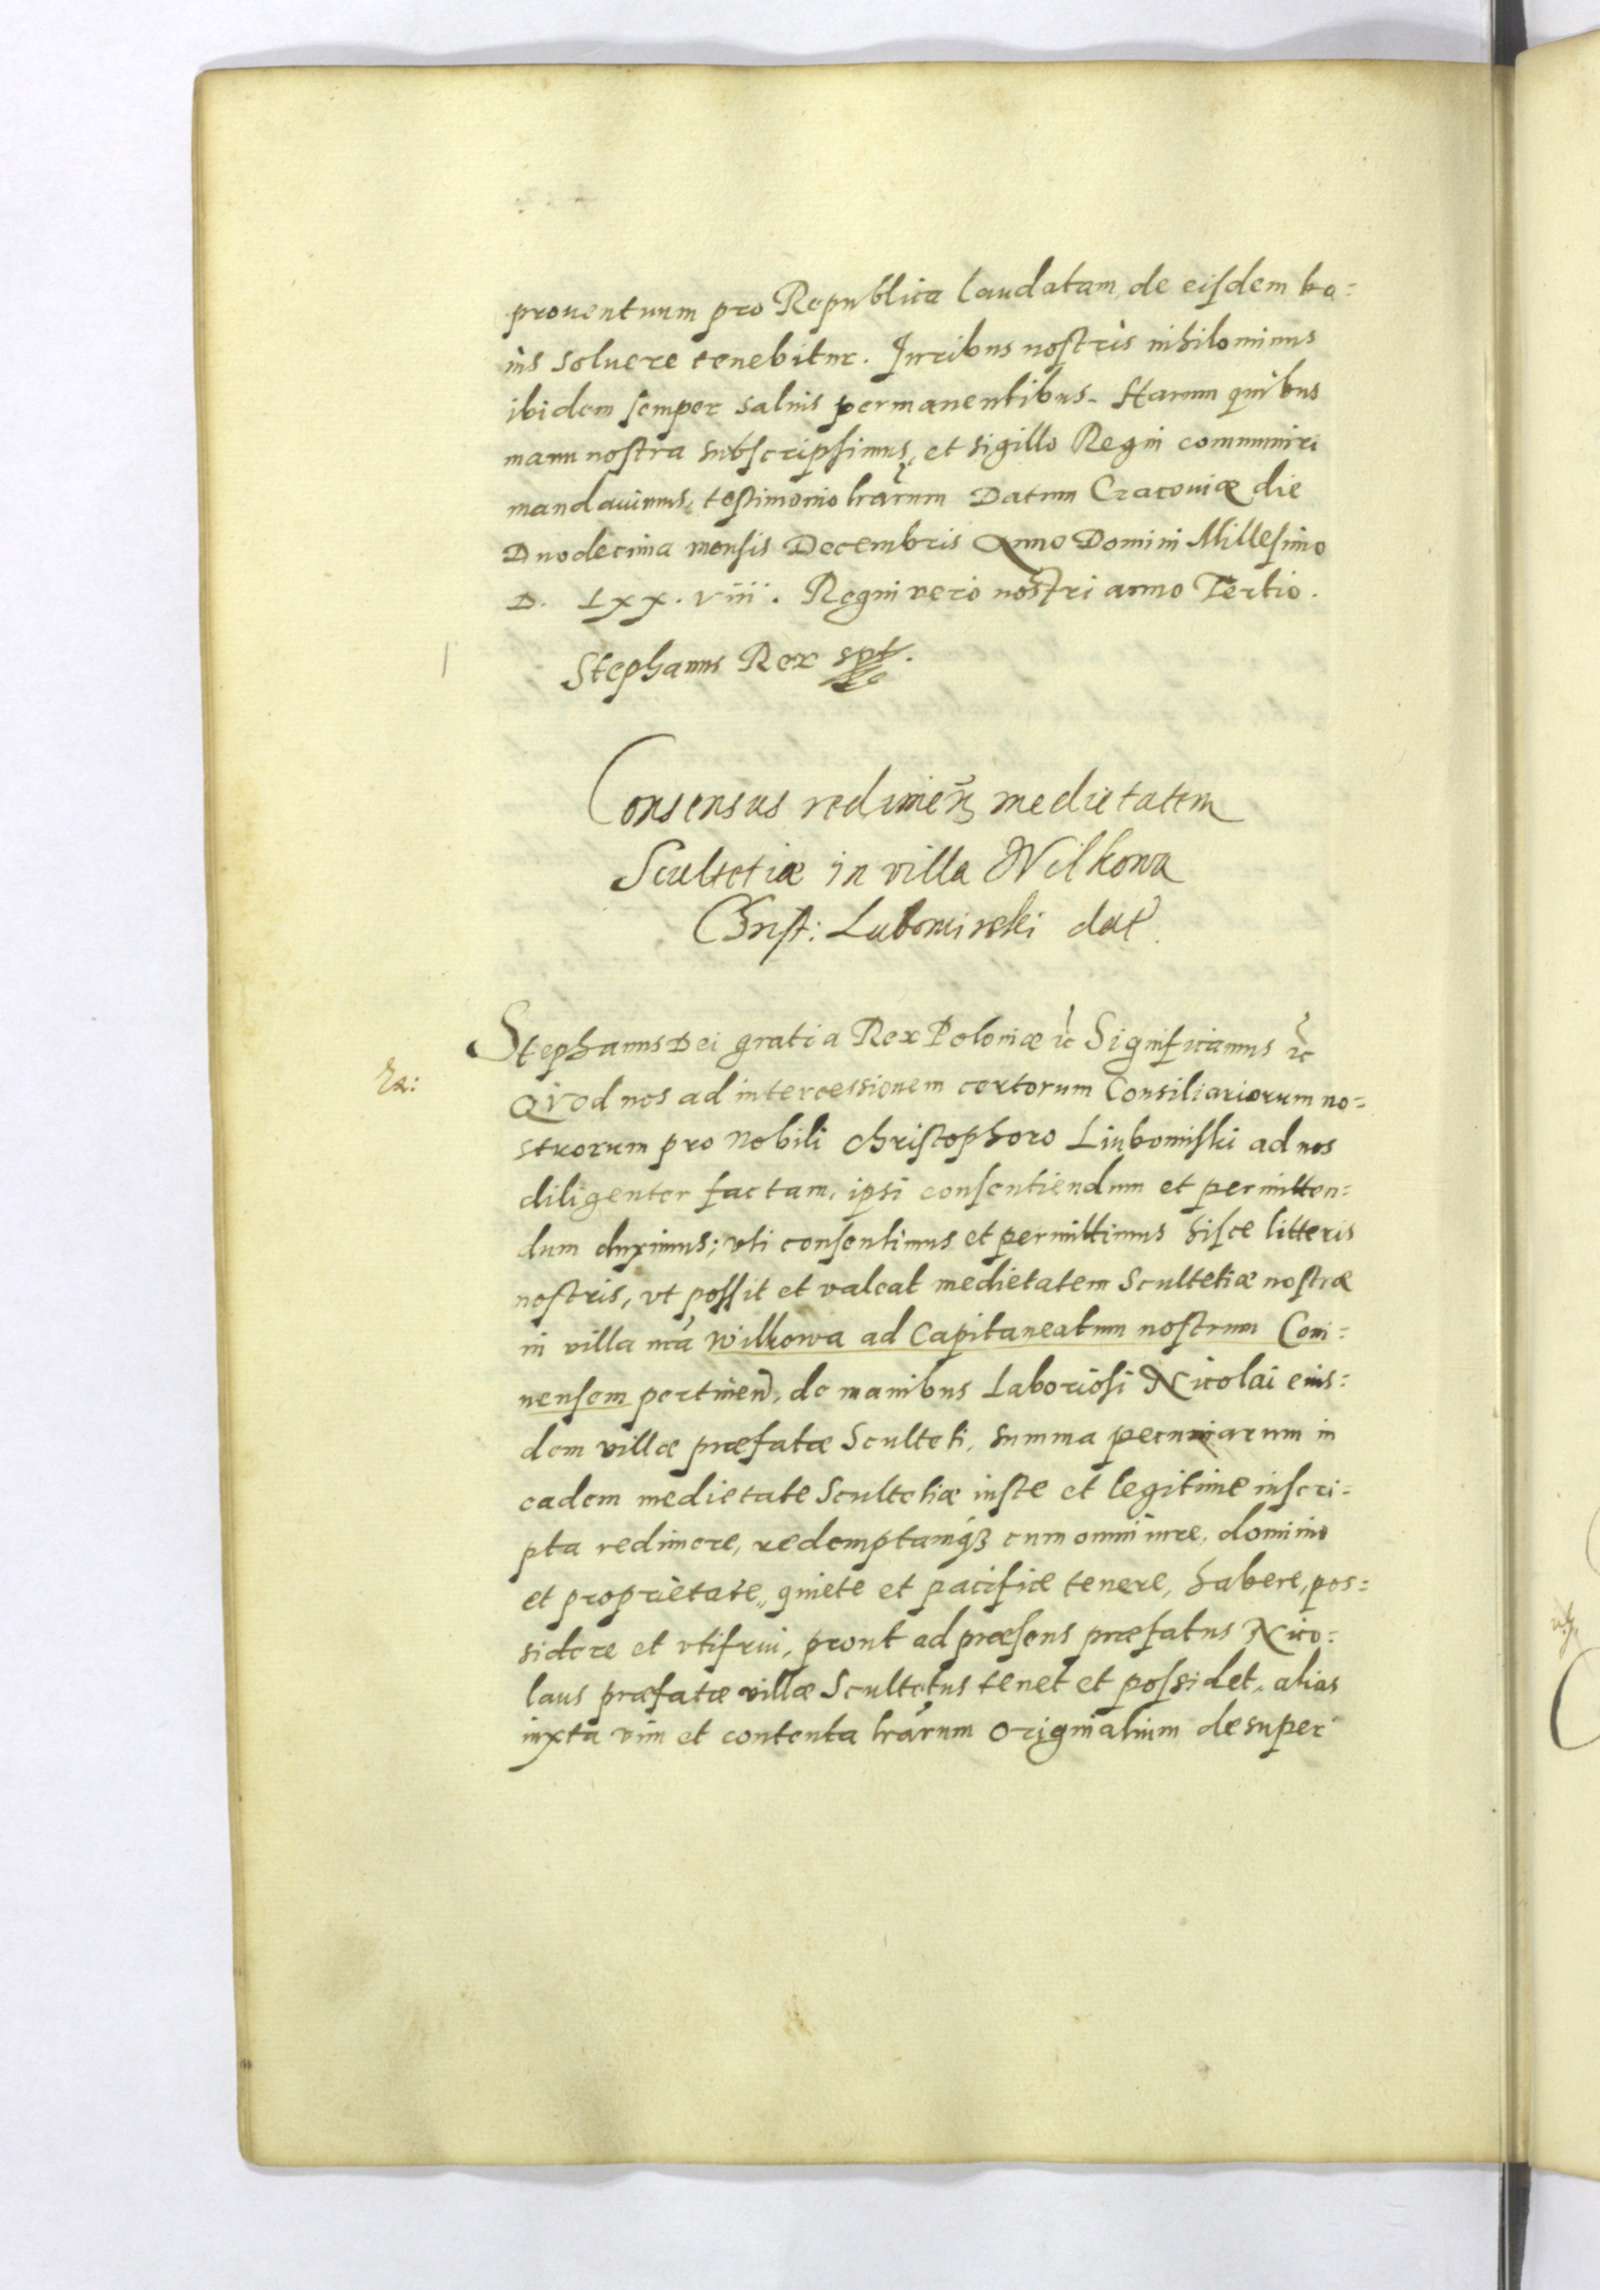 prouentuum pro Republica laudatam, de eisdem bo=
nis soluere tenebitur. Iuribus nostris nihilominus
ibidem semper saluis permanentibus. Harum quibus
manu nostra subscripsimus, et sigillo Regni communiri
mandauimus, testimonio lrarum Datum Cracouiæ die
Duodecima mensis Decembris Anno Domini Millesimo
D. LXX. VIII. Regni vero nostri anno Tertio.
Stephanus Rex spt.
Consensus redimen̄ medietatem
Scultetiæ in villa Wilkowa
Christ: Lubomirski dat̃.
Stephanus Dei gratia Rex Poloniæ ꝛc Significamus ꝛc
Quod nos ad intercessionem certorum Consiliariorum no=
strorum pro Nobili Christophoro Liubomiski ad nos
diligenter factam, ipsi consentiendum et permitten=
dum duximus; vti consentimus et permittimus hisce litteris
nostris, vt possit et valeat medietatem Scultetiæ nostræ
in villa nrã Wilkowa ad Capitaneatum nostrum Coni=
nensem pertinen̄, de manibus Laboriosi Nicolai eius=
dem villæ præfatæ Sculteti, summa pecuniarum in
eadem medietate Scultetiæ iuste et legitime inscri=
pta redimere, redemptamq́ꝫ cum omni iure, dominio
et proprietate, quiete et pacifice tenere, habere, pos=
sidere et vtifrui, prout ad præsens præfatus Nico=
laus præfatæ villæ Scultetus tenet et possidet, alias
iuxta vim et contenta lrarum originalium desuper